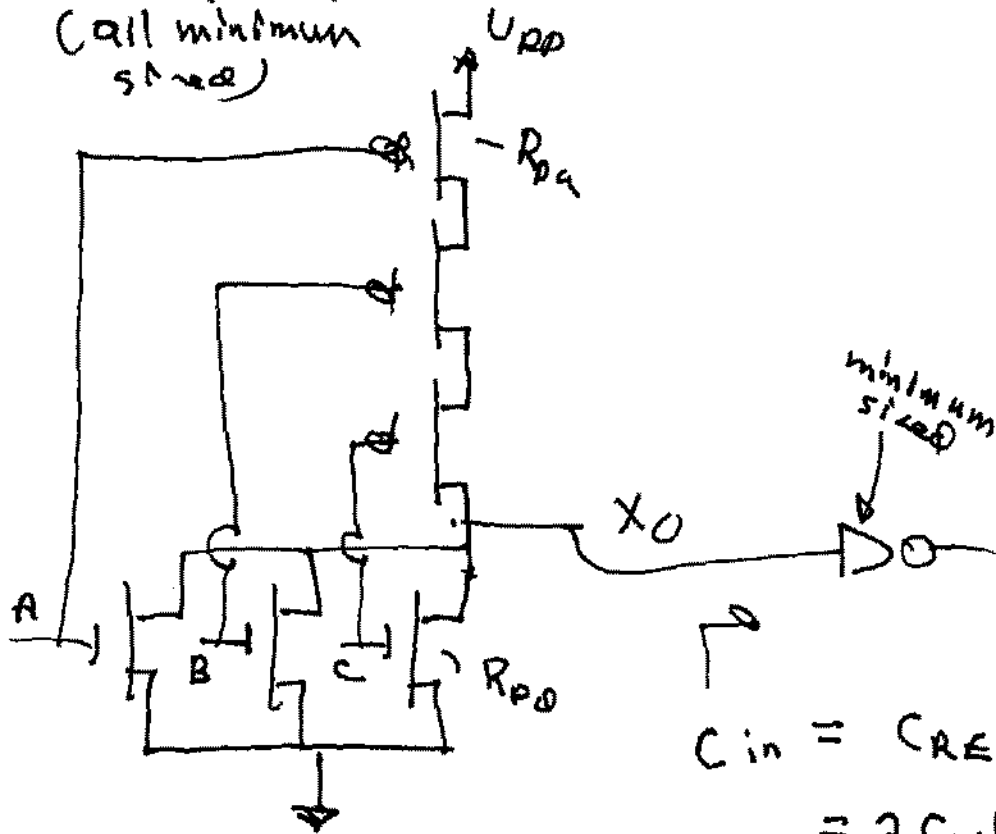 (all minimum
sized)
VDD
RPQ
minimum
sized
XO
A
B
C
RPD
Cin = CRE